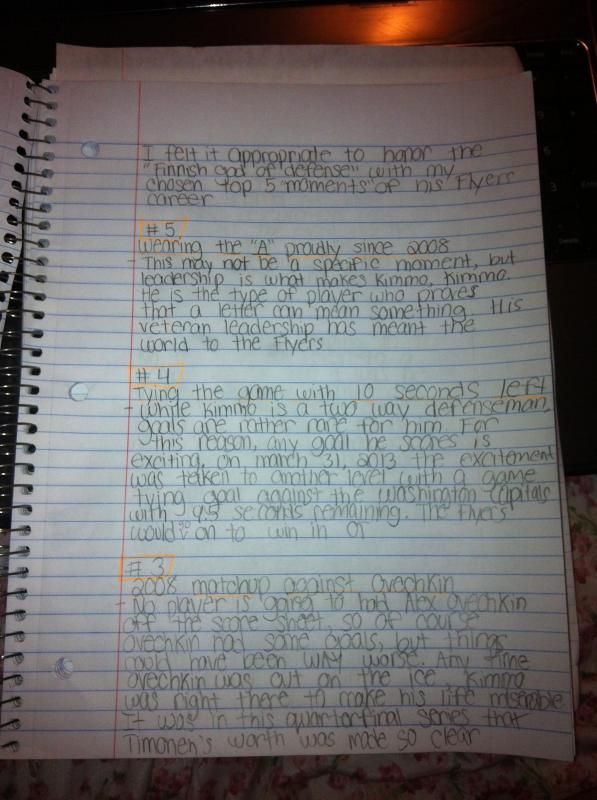 I felt it appropriate to honor the
"Finnish god of defense" with my
chosen top 5 "moments" of his Flyers
career
#5
Wearing the "A" proudly since 2008
- This may not be a specific moment, but
leadership is what makes Kimmo, Kimmo.
He is the type of player who proves
that a letter can mean something. His
veteran leadership has meant the
world to the Flyers
#4
Tying the game with 10 seconds left
- While Kimmo is a two way defenseman,
goals are rather rare for him. For
this reason, any goal he scores is
exciting. On march 31, 2013 the excitement
was taken to another level with a game
tying goal against the Washington Capitals
with 9.5 seconds remaining. The Flyers
would go on to win in OT
#3
2008 matchup against Ovechkin
- No player is going to hold Alex Ovechkin
off the score sheet, so of course
Ovechkin had some goals, but things
could have been WAY worse. Any time
Ovechkin was out on the ice, Kimmo
was right there to make his life miserable
It was in this quarterfinal series that
Timonen's worth was made so clear